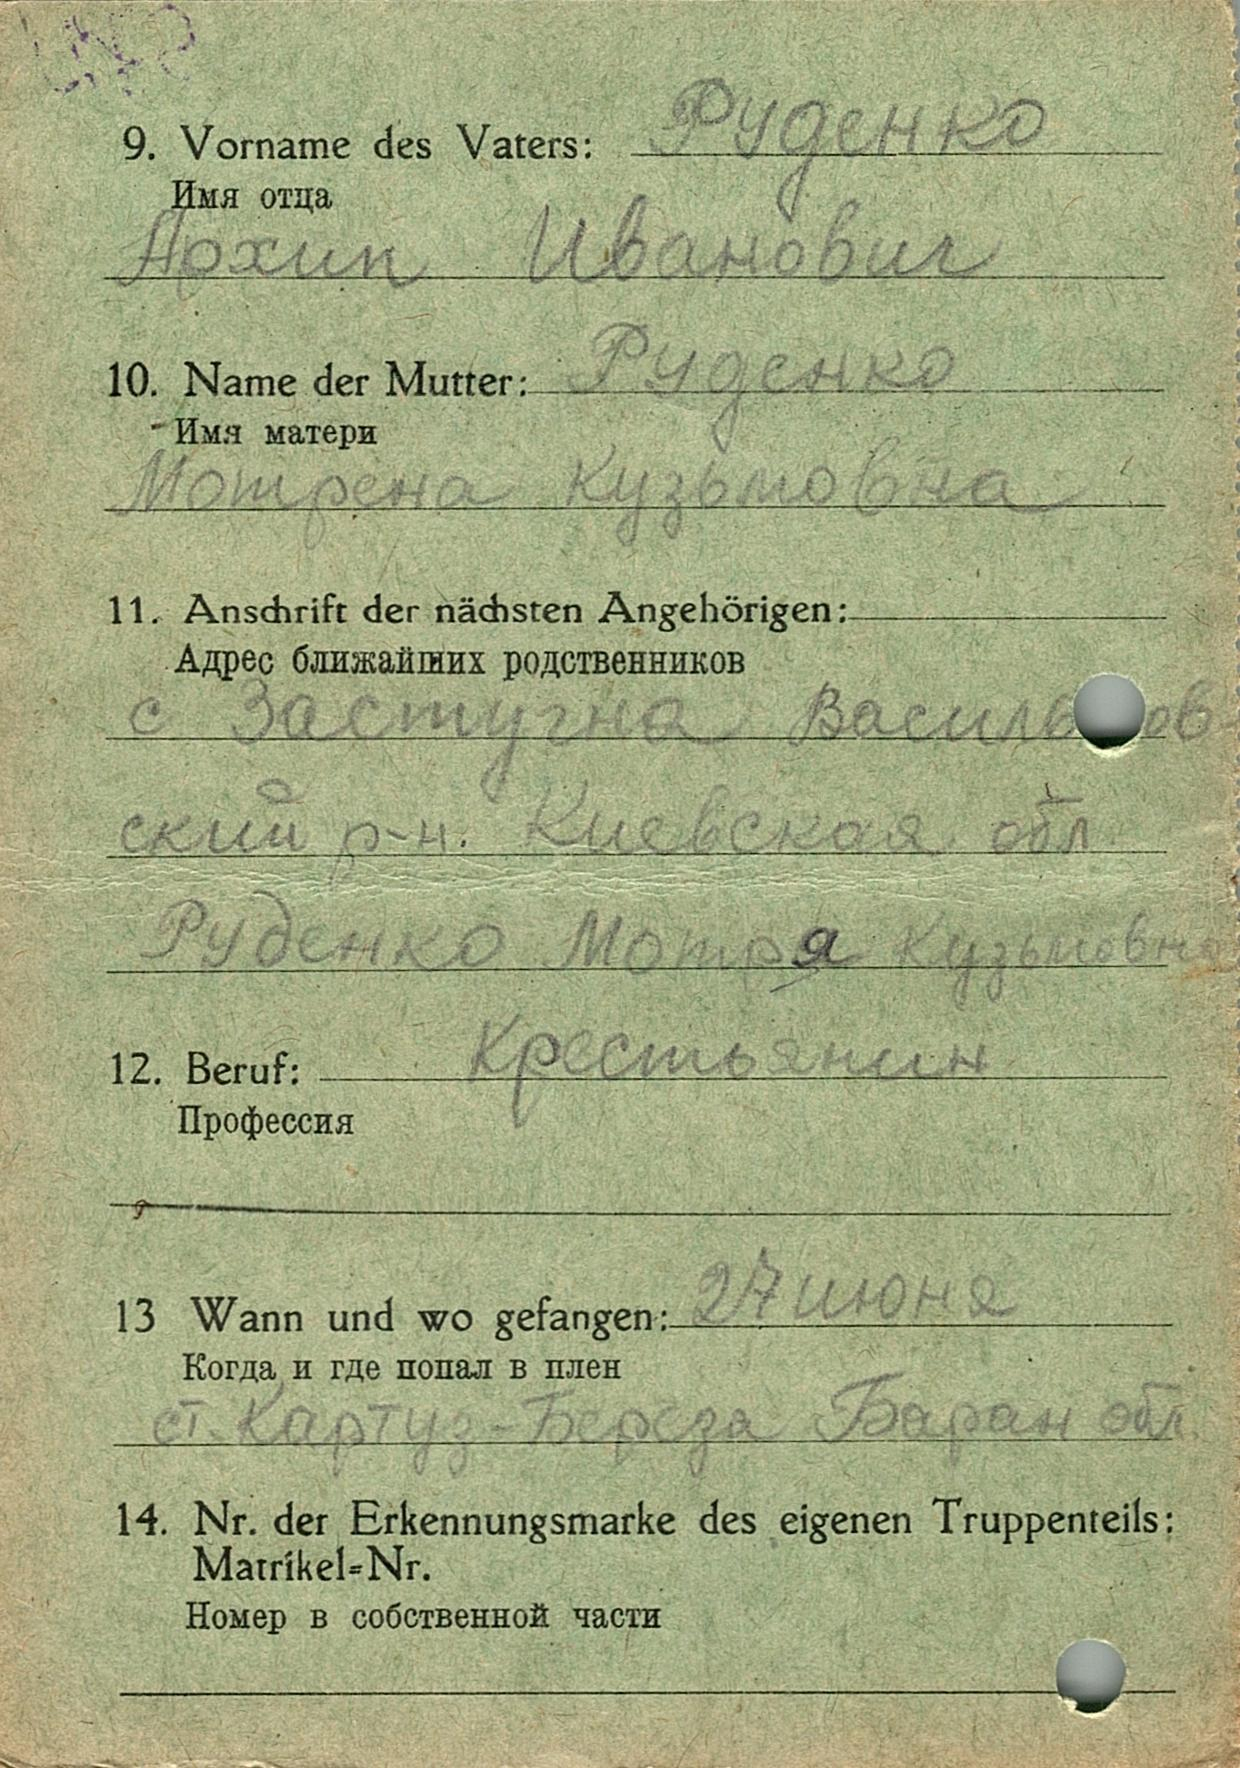 9. Vorname des Vaters: Руденко
Имя отца
Архип Иванович
10. Name der Mutter: Руденко
Имя матери
Мотрена Кузьмовна
11. Anschrift der nächsten Angehörigen:
Адрес ближайших родственников
с Застугна Васильков-
ский р-н. Киевская обл
Руденко Мотря Кузьмовна
12. Beruf: Крестьянин
Профессия
13 Wann und wo gefangen: 27 июня
Когда и где попал в плен
ст. Картуз-Береза Баран обл
14. Nr. der Erkennungsmarke des eigenen Truppenteils:
Matrikel=Nr.
Номер в собственной части